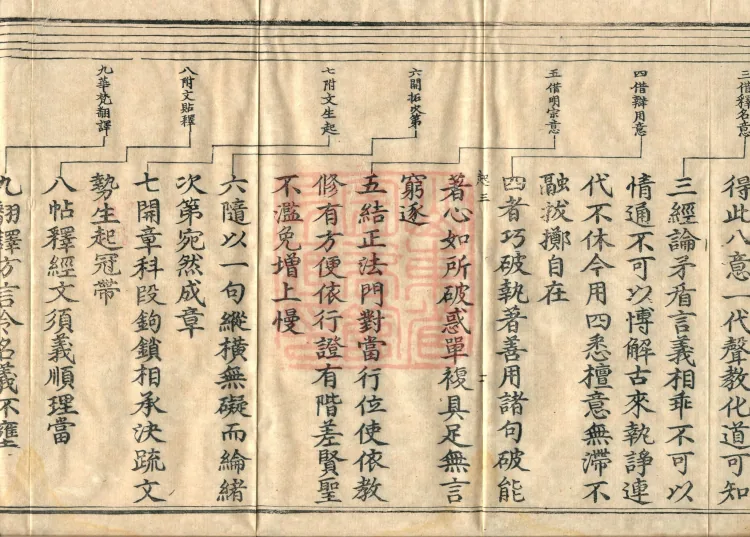 三借釋名意
四借辯用意
五借明宗意
六開拓次第
七附文生起
八附文貼釋
九華梵翻譯
得此八意一代聲教化道可知
三經論矛盾言義相乖不可以
情通不可以博解古來執諍連
代不休今用四悉檀意無滯不
融拔擲自在
四者巧破執著善用諸句破能
著心如所破惑單複具足無言
窮逐
五結正法門對當行位使依教
修有方便依行證有階差賢聖
不濫免增上慢
六隨以一句縱橫無礙而綸緒
次第宛然成章
七開章科段鉤鎖相承決疏文
勢生起冠帶
八帖釋經文須義順理當
九翻譯方言令名義不壅